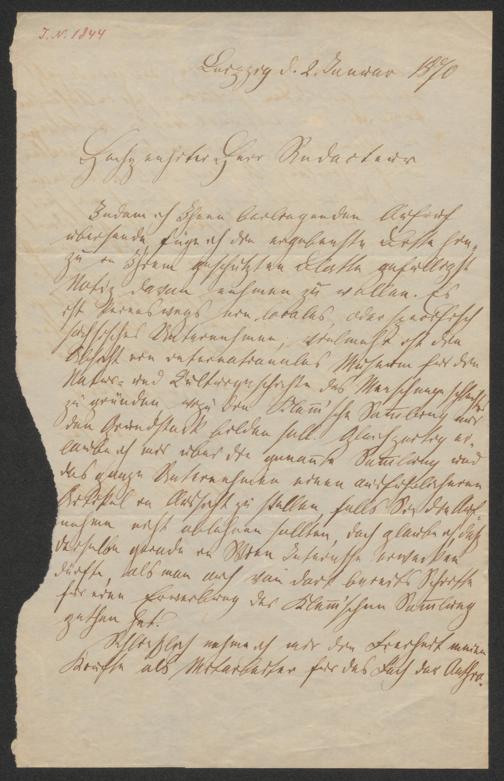 J. N. 1844
Leipzig d. 2. Januar 1870
Hochgeehrter Herr Redacteur
Indem ich Ihnen beiliegenden Aufruf
übersende füge ich die ergebenste Bitte hin-
zu in Ihrem geschätzten Blatte gefälligst
Notiz davon nehmen zu wollen. Es
ist keineswegs ein locales, oder specifisch
sächsisches Unternehmen, vielmehr ist die
Absicht ein internationales Museum für die
Natur- und Culturgeschichte des Menschengeschlechts
zu gründen, wozu die Klemm'sche Sammlung nur
den Grundstock bilden soll. Gleichzeitig er-
laube ich mir über die genannte Sammlung und
das ganze Unternehmen einen ausführlicheren
Artikel in Aussicht zu stellen, falls Sie die Auf-
nahme nicht ablehnen sollten, doch glaube ich daß
derselbe gerade in Wien Interesse erwecken
dürfte, als man auch von dort bereits Schritte
für eine Erwerbung der Klemm'schen Sammlung
gethan hat.
Schließlich nehme ich mir die Freiheit meine
Kräfte als Mitarbeiter für das Fach der Anthro-